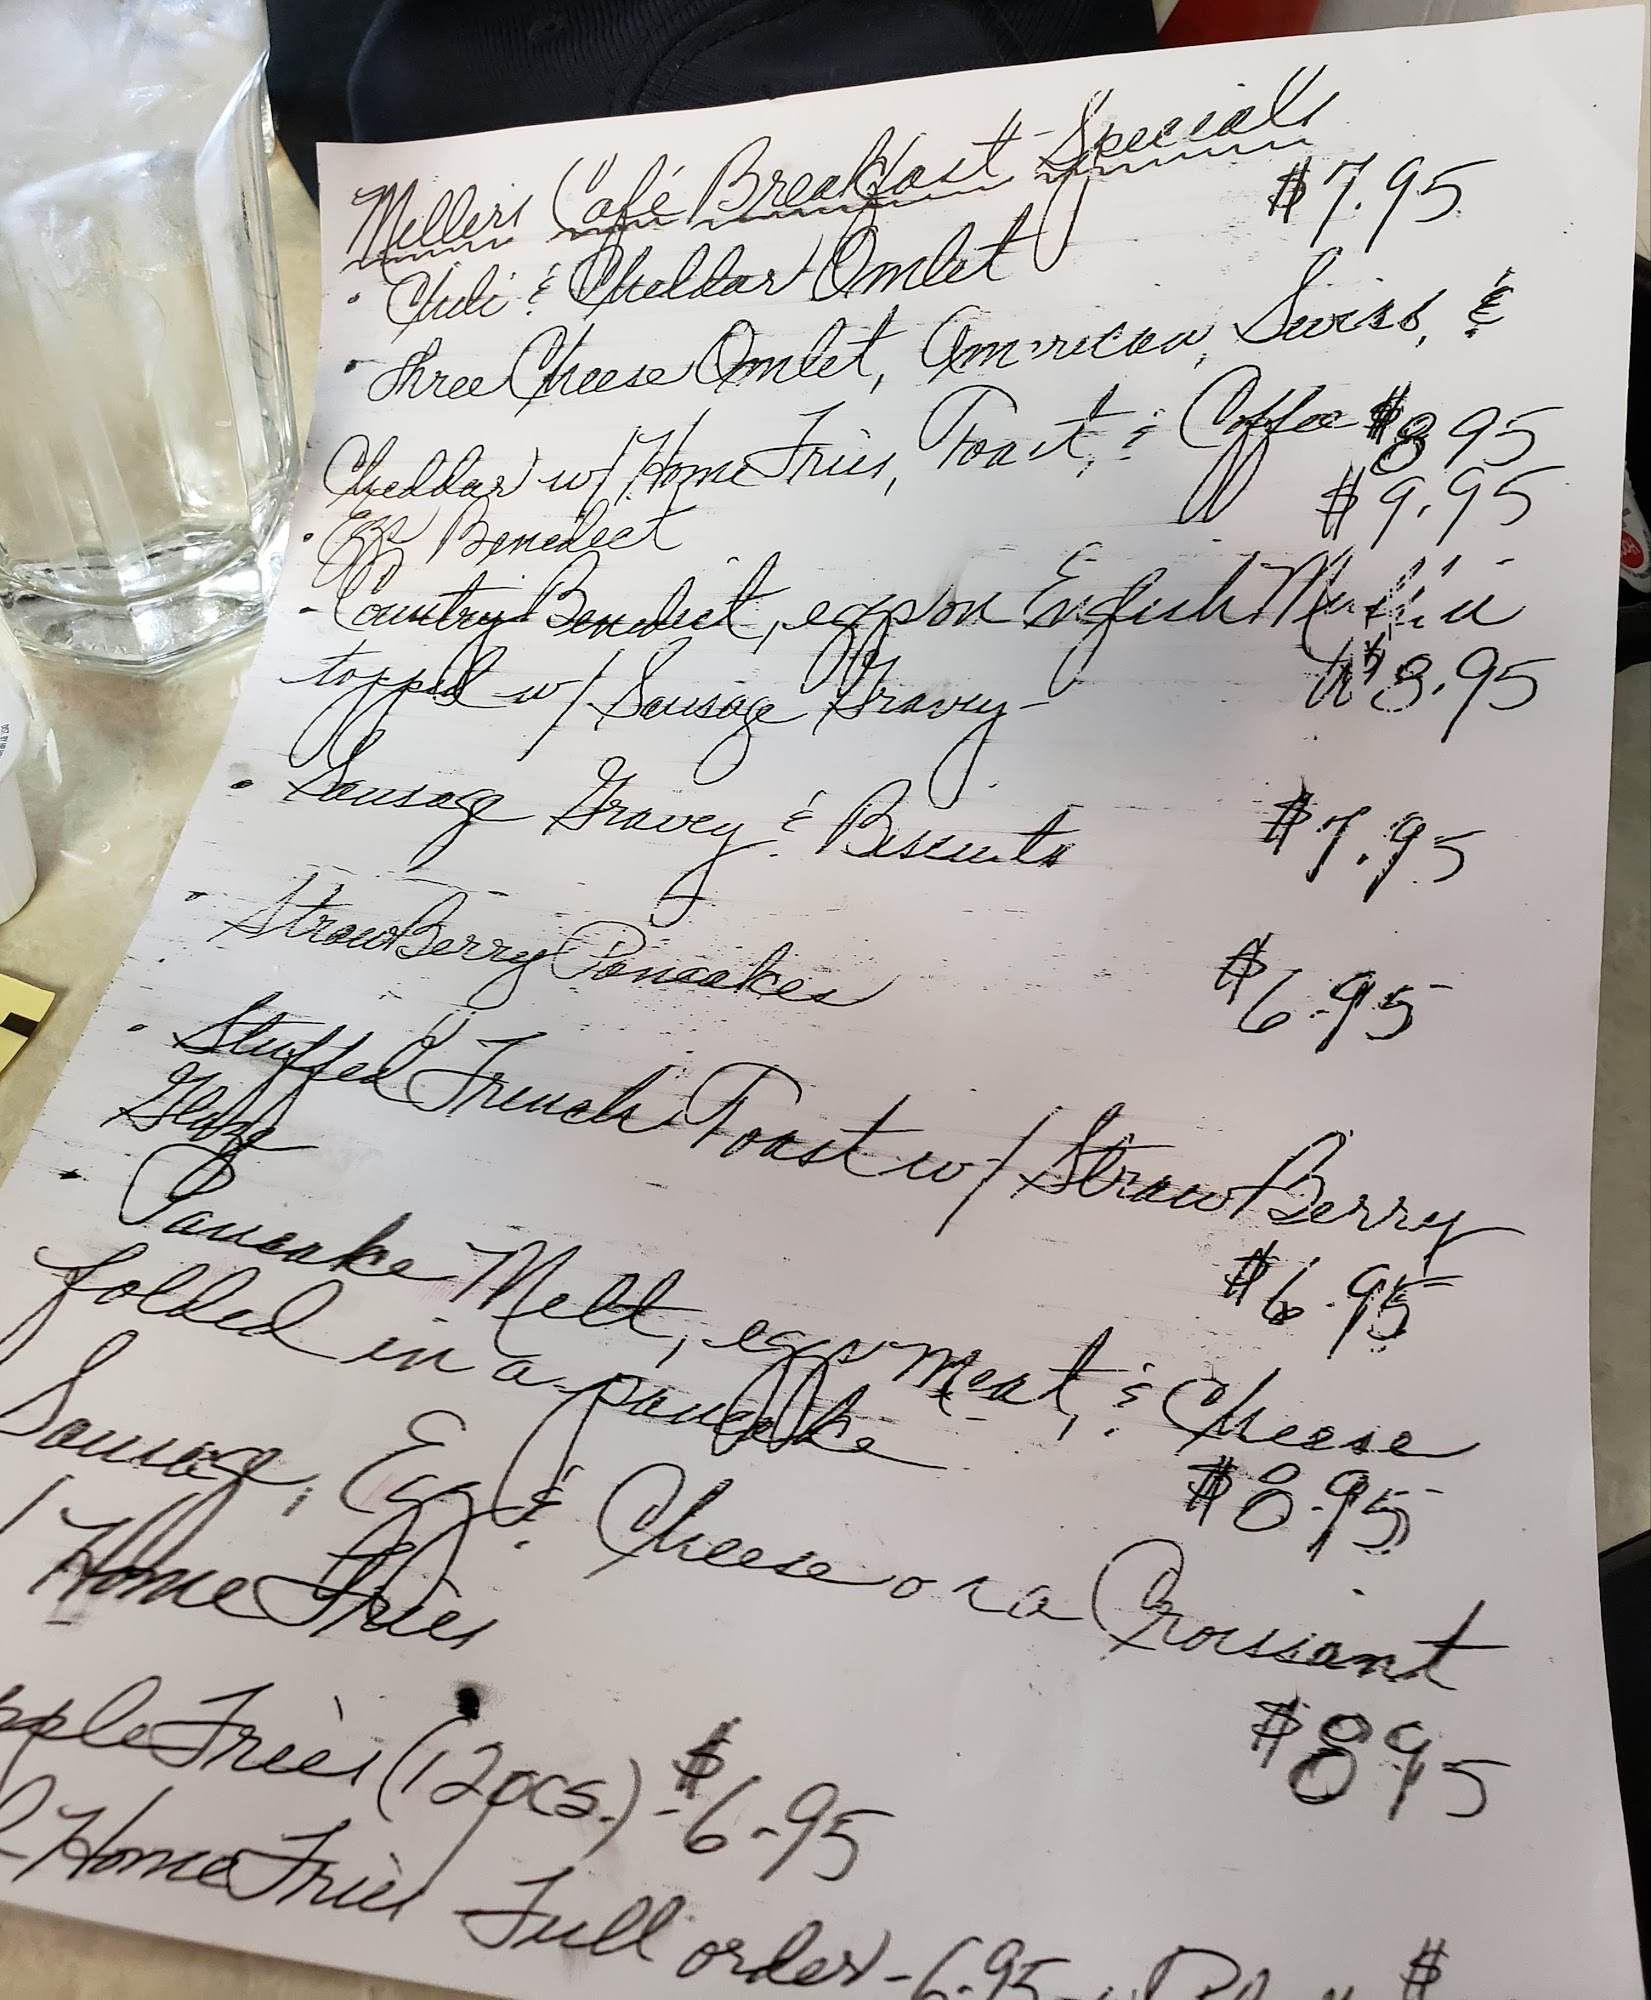 Millers Café Breakfast Specials
• Chili & Cheddar Omlet $7.95
• Three Cheese Omlet, American, Swiss, &
Cheddar w/ Home Fries, Toast, & Coffee $8.95
• Egg Benedict $9.95
• Country Benedict, eggs on English Muffin
topped w/ Sausage Gravey - $8.95
• Sausage Gravey & Biscuits $7.95
• StrawBerry Pancakes $6.95
• Stuffed French Toast w/ StrawBerry
Glaze $6.95
• Pancake Melt, eggs Meat, & Cheese
folded in a pancake $8.95
Sausage, Egg & Cheese on a Croissant
/ Home Fries $8.95
pple Fries (12pcs.) - $6.95
Home Fries Full order - 6.95
$